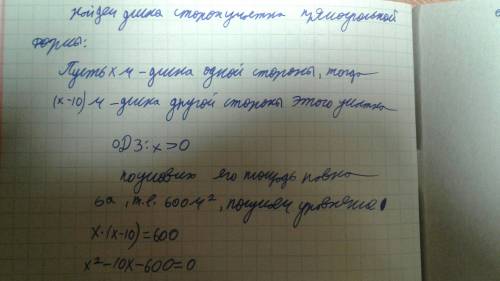 Найдем длина сторон участка прямоугольной
формы:
Пусть x м - длина одной стороны, тогда
(x-10) м - длина другой стороны этого участка
ОДЗ: x>0
по условию его площадь равна
6а, т.е. 600 м², получим уравнение
x·(x-10)=600
x²-10x-600=0